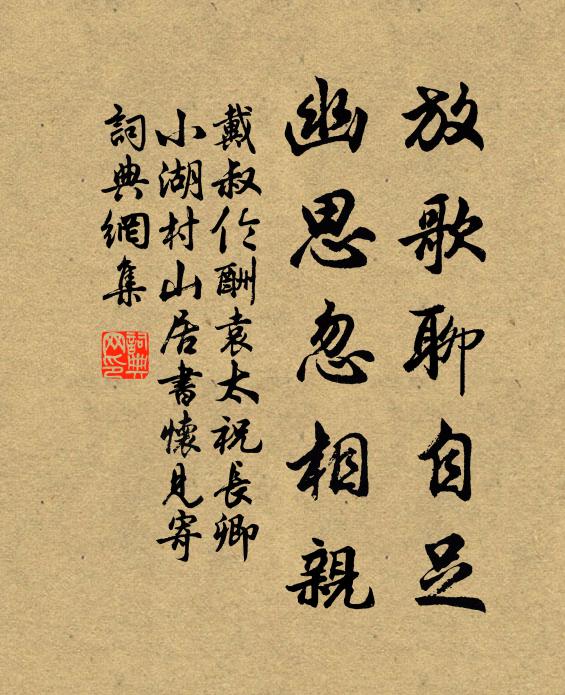 放歌聊自足
幽思忽相親
戴叔伦酬袁太祝長卿
小湖村山居書懷見寄
詞典網集
詞典网印